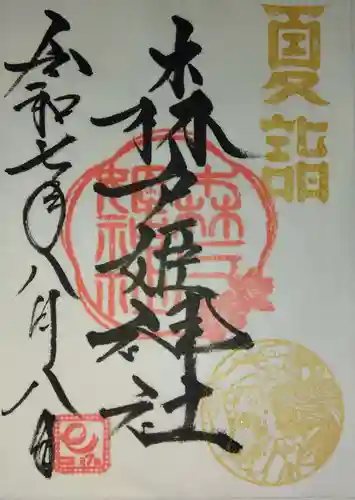 夏詣
森戸姫神社
令和七年八月八日